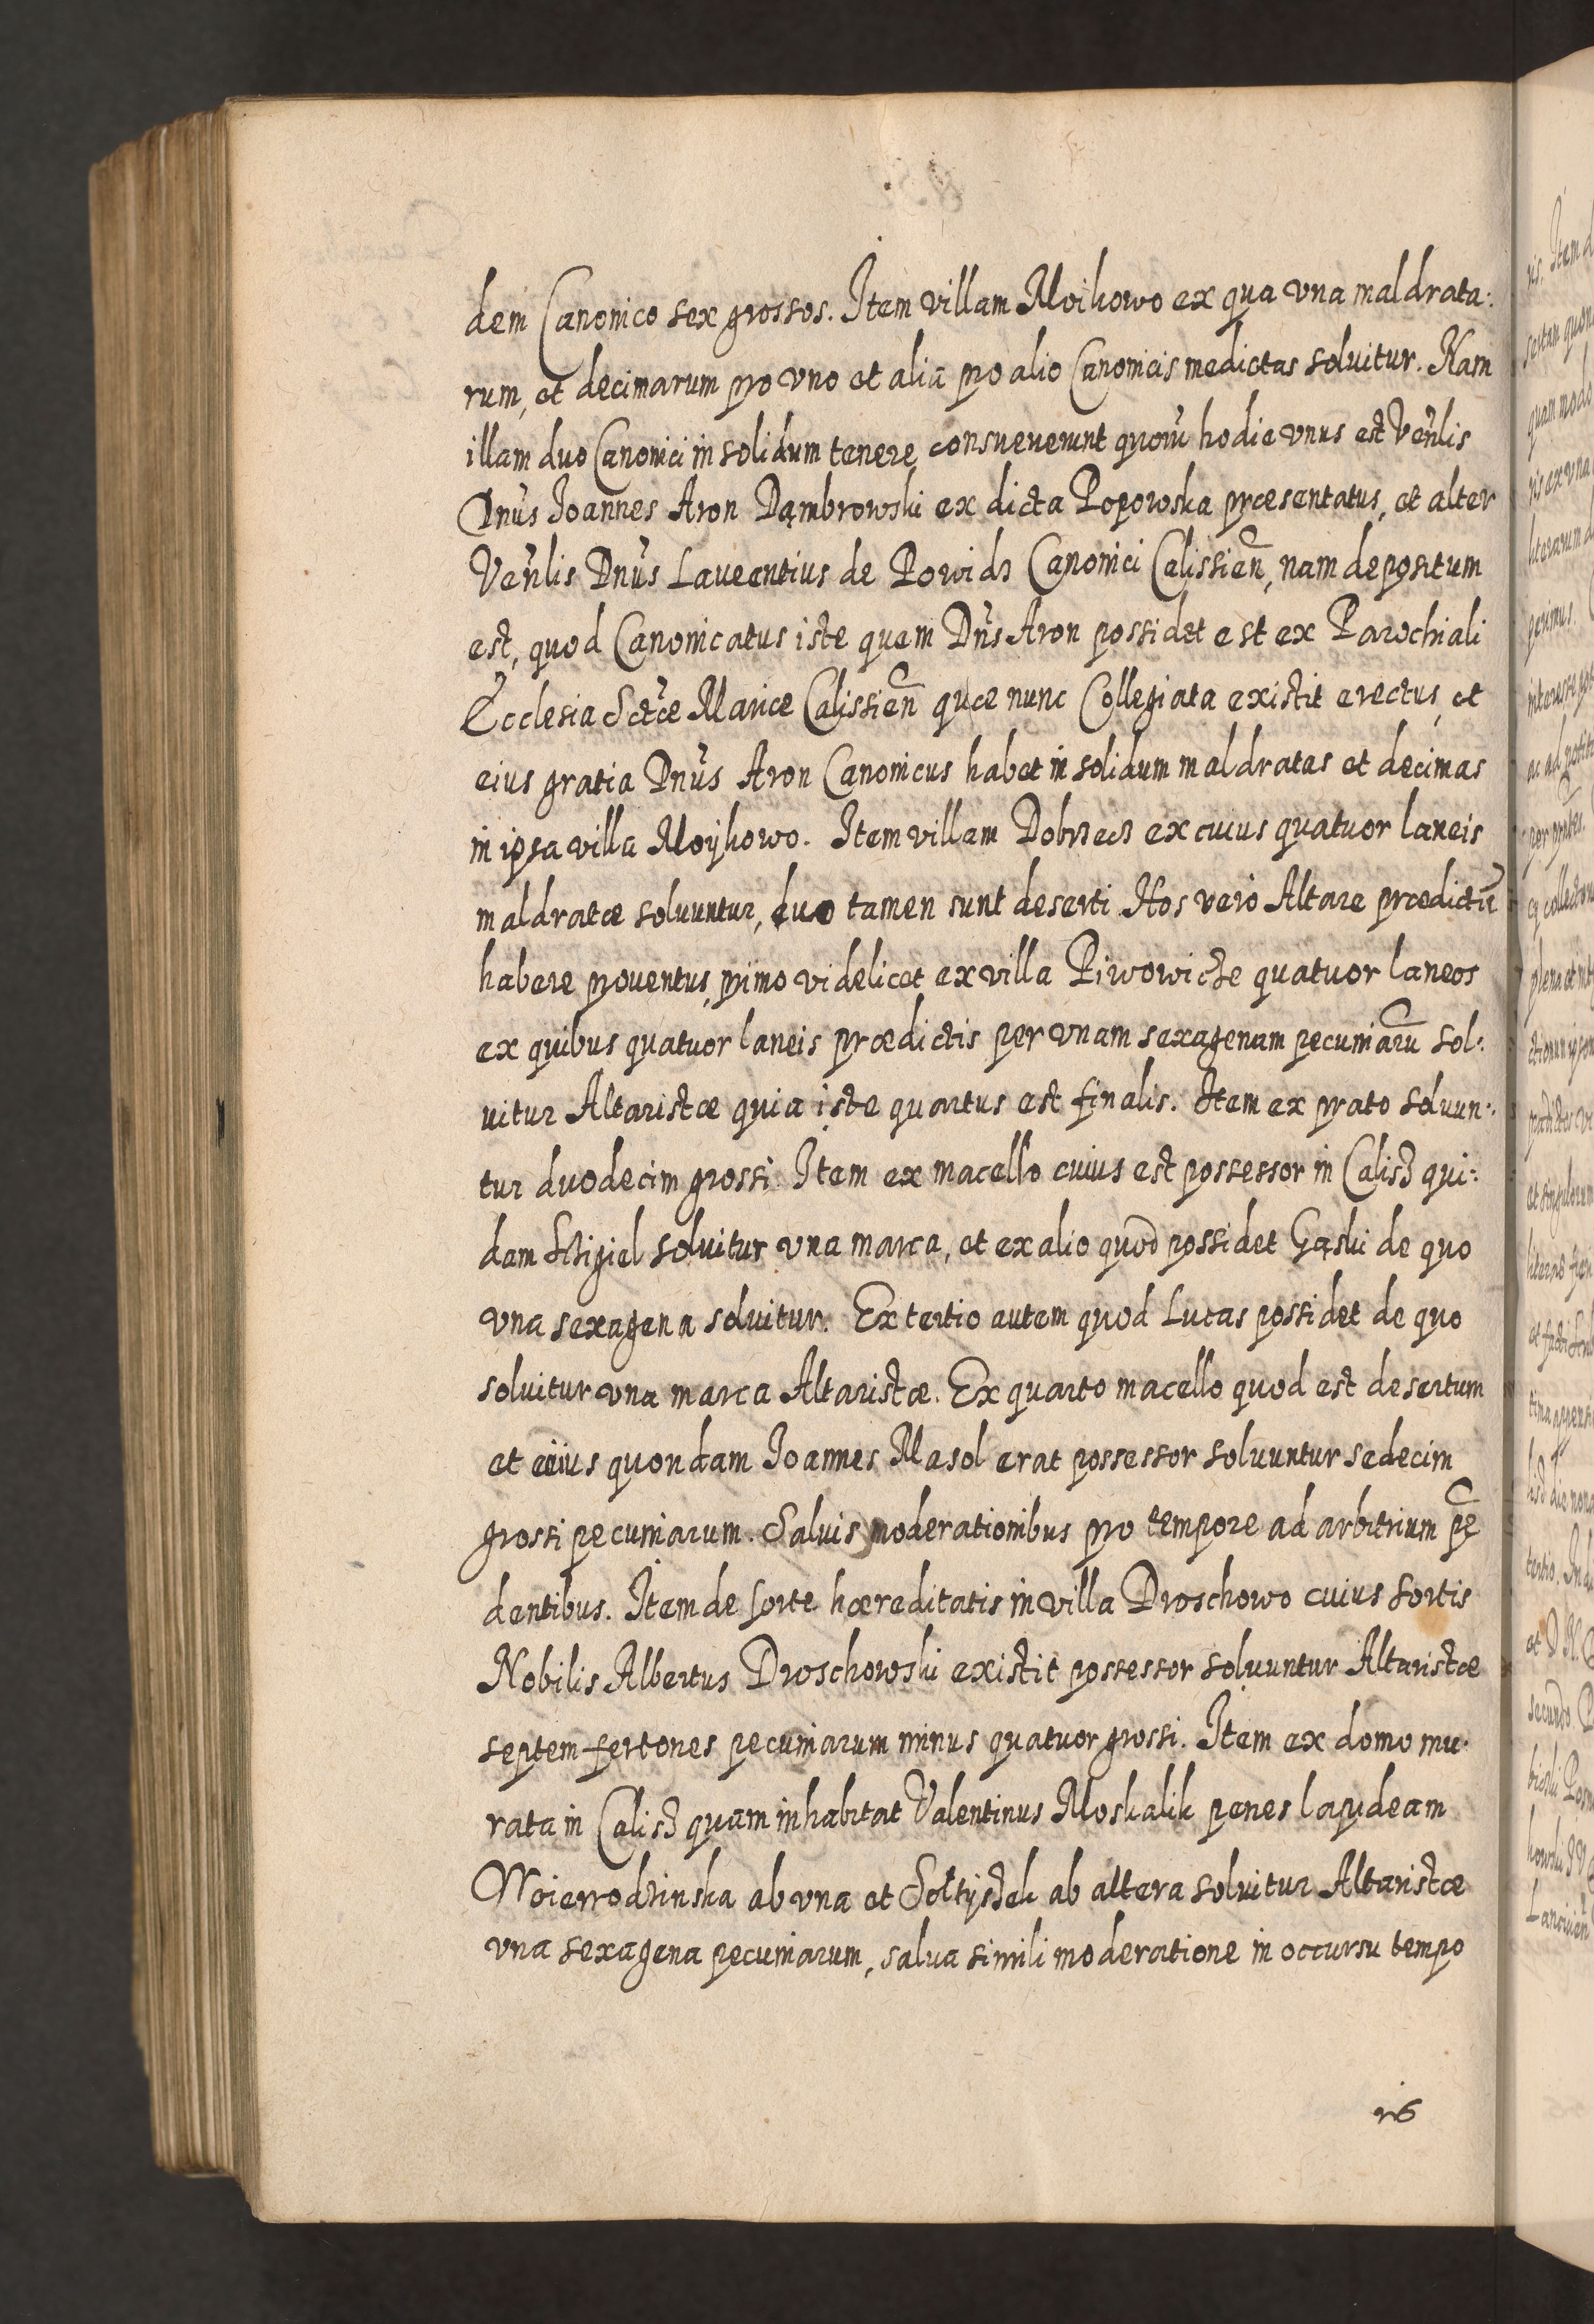 dem Canonico sex grossos. Item villam Moikowo ex qua vna maldrata:
rum, et decimarum pro vno et alia pro alio Canonicis medietas soluitur. Nam
illam duo Canonici in solidum tenere consueuerunt quorū hodie vnus est Venlis
Dnus Joannes Aron Dąmbrowski ex dicta Popowska præsentatus, et alter
Venlis Dnus Laurentius de Powidz Canonici Calissien, nam depositum
est, quod Canonicatus iste quem Dns Aron possidet est ex Parochiali
Ecclesia Sctæ Mariæ Calissien quæ nunc Collegiata existit erectus, et
eius gratia Dnus Aron Canonicus habet in solidum maldratas et decimas
in ipsa villa Moykowo. Item villam Dobrzecz ex cuius quatuor laneis
maldratæ soluuntur, duo tamen sunt deserti. Hos vero Altare prædictū
habere prouentus, primo videlicet ex villa Piwowicze quatuor laneos
ex quibus quatuor laneis prædictis per vnam sexagenam pecuniarū sol:
uitur Altaristæ quia iste quartus est finalis. Item ex prato soluun:
tur duodecim grossi. Item ex macello cuius est possessor in Calisz qui:
dam Sczigiel soluitur vna marca, et ex alio quod possidet Gąski de quo
vna sexagena soluitur. Ex tertio autem quod Lucas possidet de quo
soluitur vna marca Altaristæ. Ex quarto macello quod est desertum
et cuius quondam Joannes Masol erat possessor soluuntur sedecim
grossi pecuniarum. Saluis moderationibus pro tempore ad arbitrium pē
dentibus. Item de sorte hæreditatis in villa Droschowo cuius sortis
Nobilis Albertus Droschowski existit possessor soluuntur Altaristæ
septem fertones pecuniarum minus quatuor grossi. Item ex domo mu:
rata in Calisz quam inhabitat Valentinus Moskalik penes lapideam
Woierrodzinska ab vna et Sołtystek ab altera soluitur Altaristæ
vna sexagena pecuniarum, salua simili moderatione in occursu tempo
ris